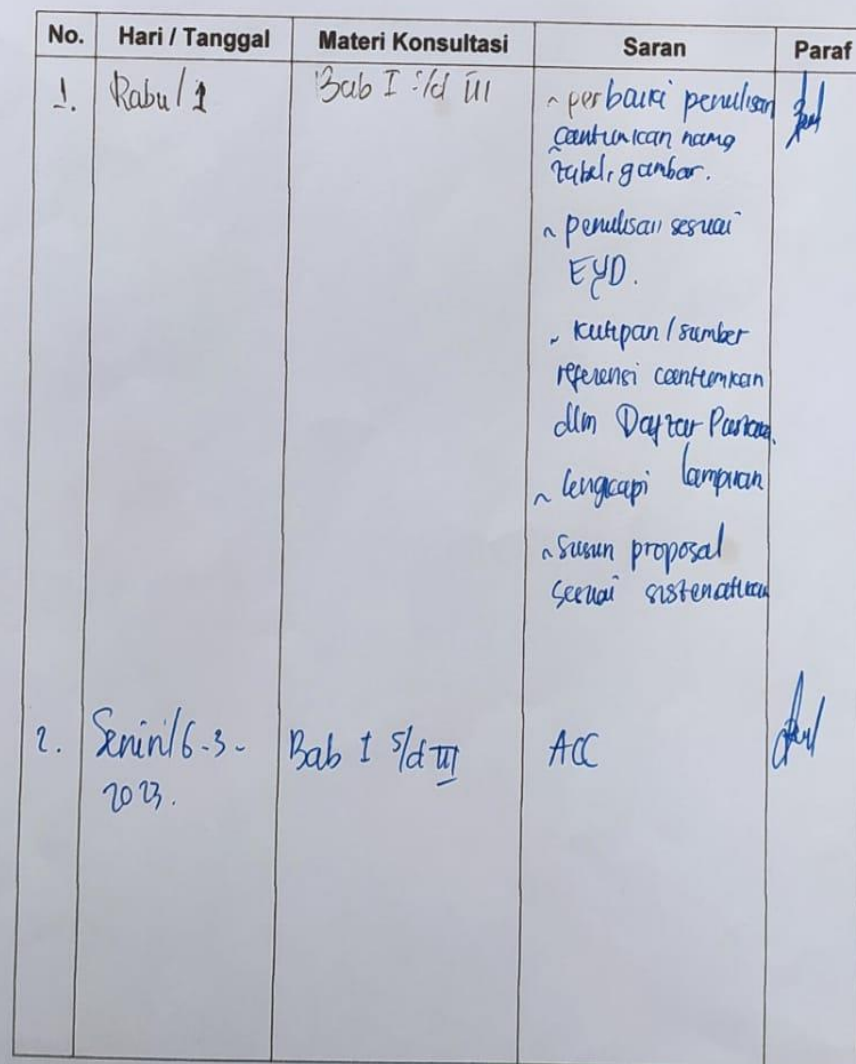 No. Hari / Tanggal Materi Konsultasi Saran Paraf
1. Rabu / 1 Bab I s/d III ~ perbaiki penulisan
cantumkan nama
tabel, gambar.
~ penulisan sesuai
EYD.
~ kutipan / sumber
referensi cantumkan
dlm Daftar Pustaka.
~ lengkapi lampiran
~ Susun proposal
sesuai sistematika
2. Senin / 6-3- Bab I s/d III ACC
2023.